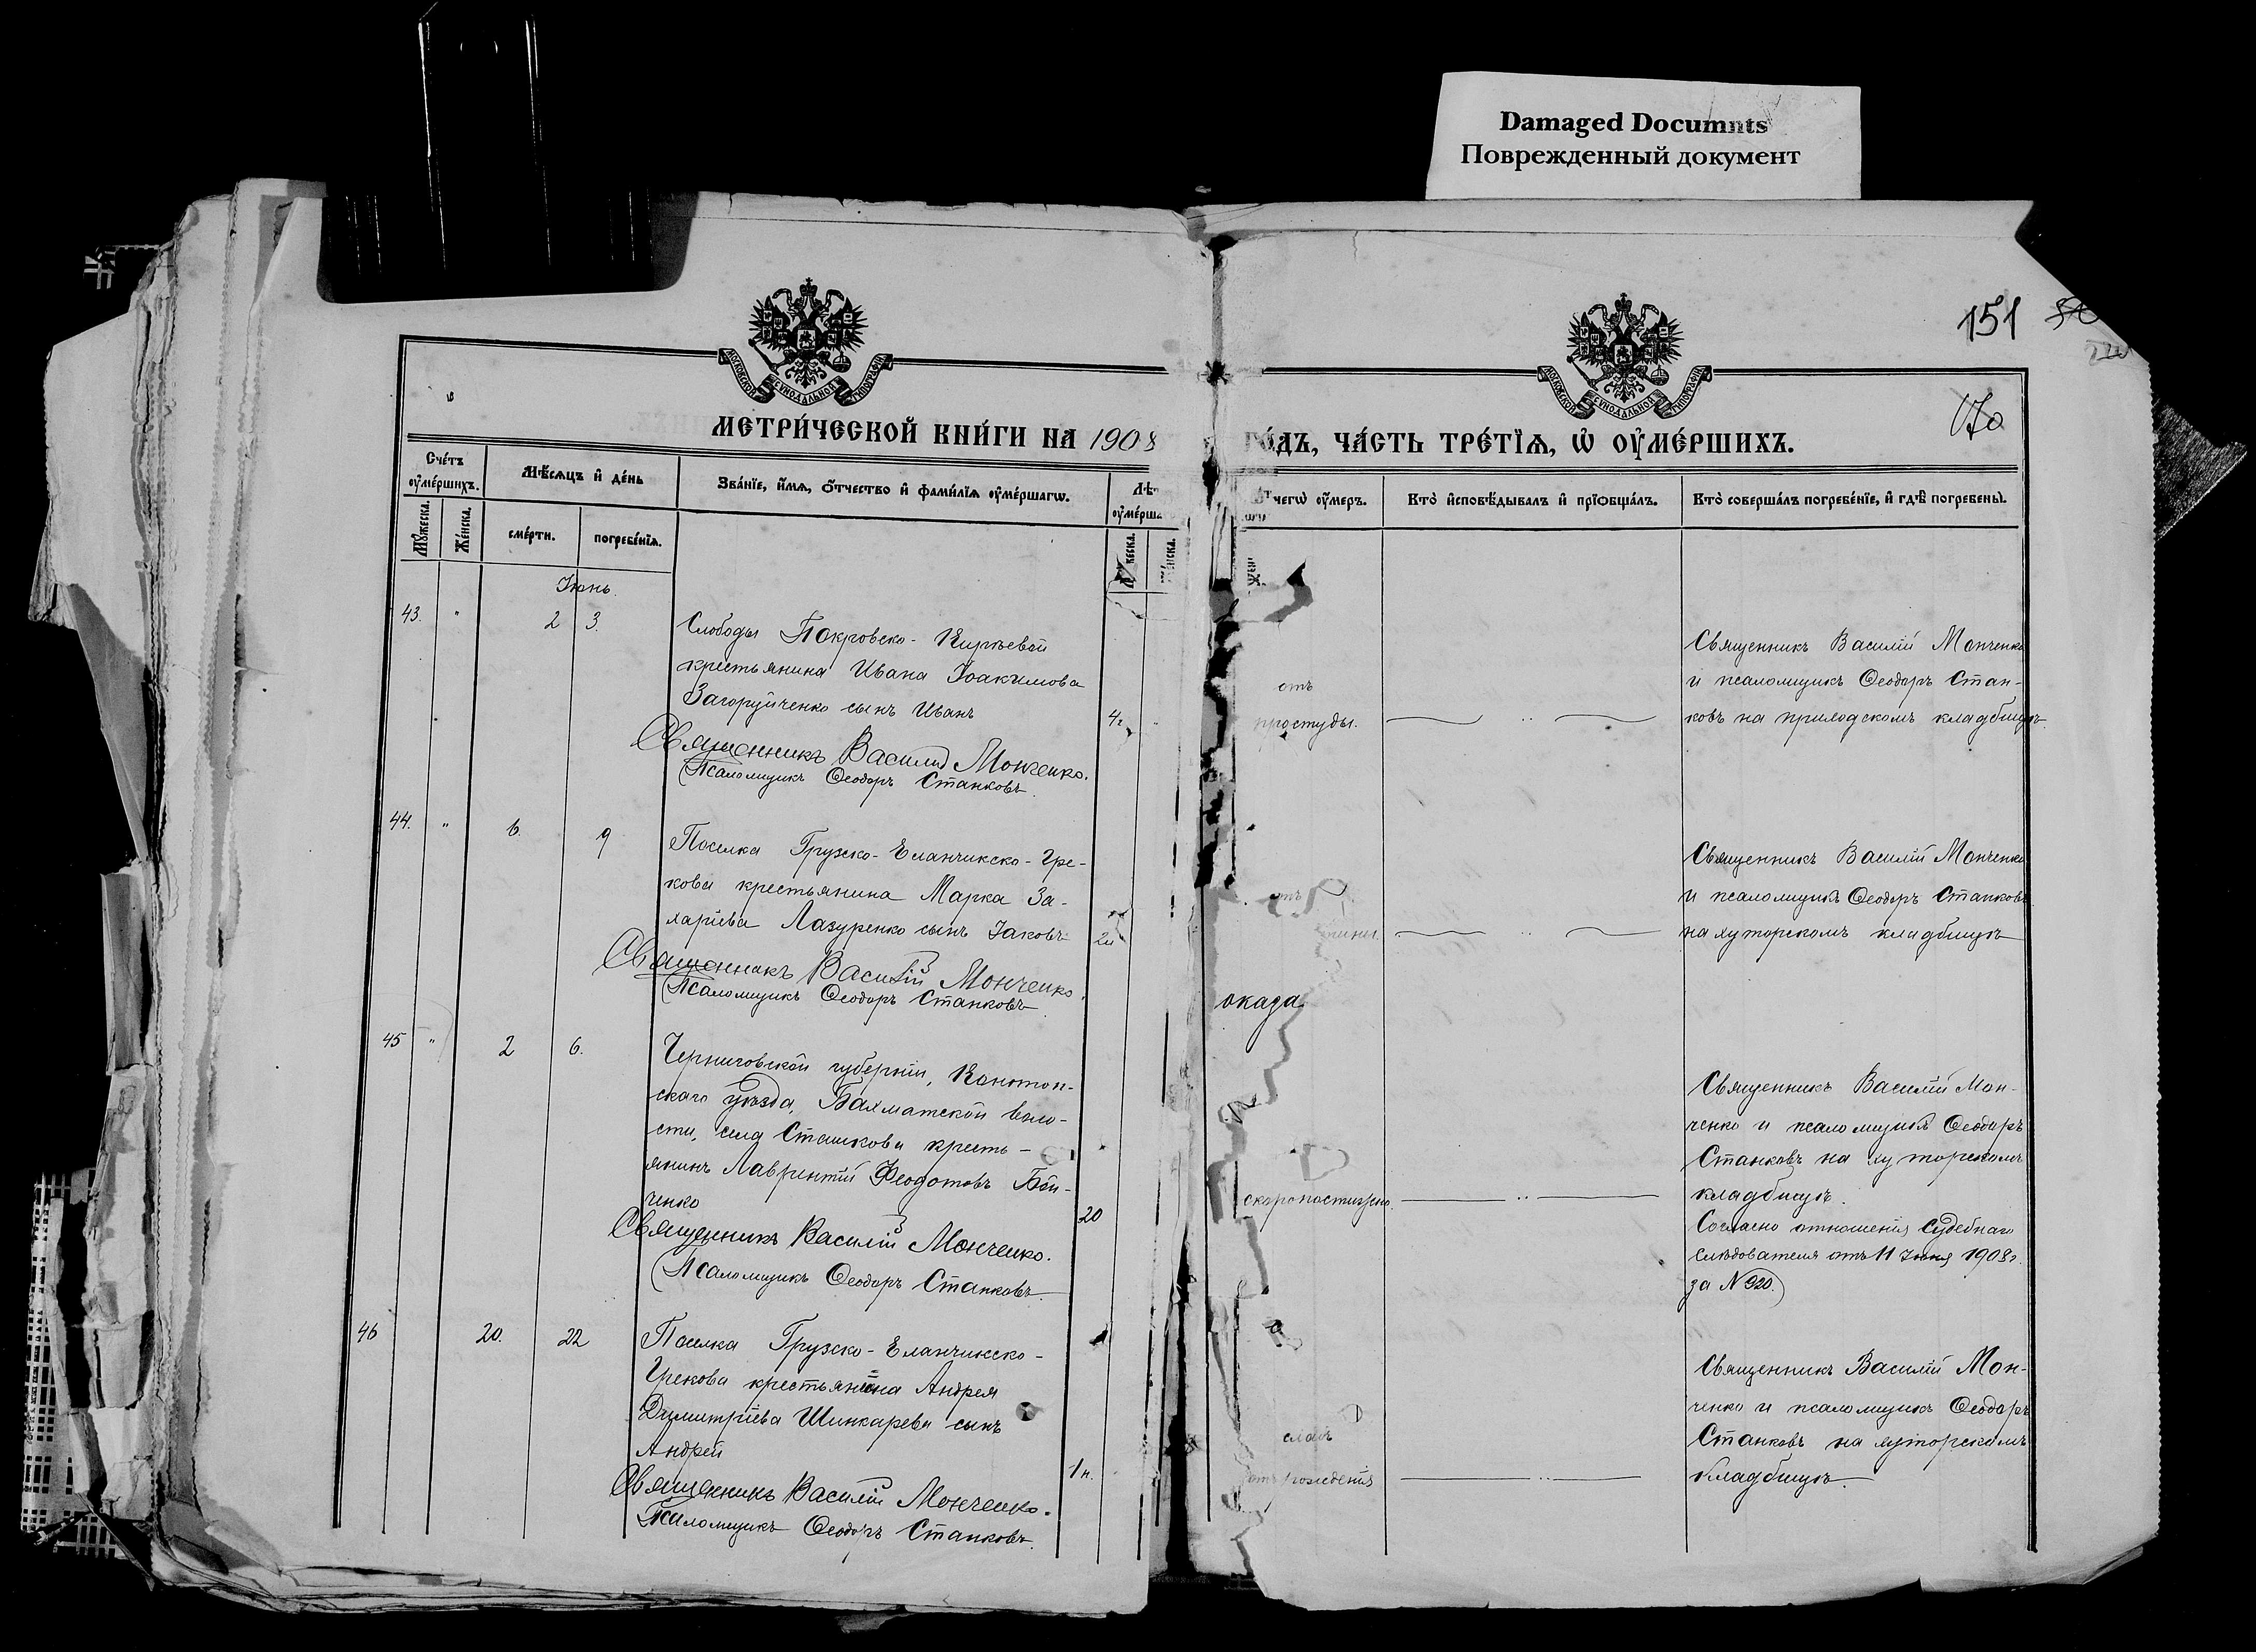 Damaged Documnts
Поврежденный документ
151
170
МОСКОВСКОЙ СѴНОДАЛЬНОЙ ТИПОГРАФІИ
МОСКОВСКОЙ СѴНОДАЛЬНОЙ ТИПОГРАФІИ
МЕТРИ́ЧЕСКОЙ КНИ́ГИ НА 1908
ГО́ДЪ, ЧА́СТЬ ТРЕ́ТЇѦ, Ѡ҆ ОУ҆МЕ́РШИХЪ.
Сче́тъ оу҆ме́ршихъ.
Мꙋ́жеска.
Же́нска.
Мѣ́сѧцъ и҆ де́нь
сме́рти.
погребе́нїѧ.
Зва́нїе, и҆́мѧ, ѻ҆́тчество и҆ фами́лїѧ оу҆ме́ршагѡ.
Лѣт
оу҆ме́рша
жеска.
же́нска.
чегѡ̀ оу҆́меръ.
Кто̀ и҆сповѣ́дывалъ и҆ прїѡбща́лъ.
Кто̀ соверша́лъ погребе́нїе, и҆ гдѣ̀ погребены̀.
Іюнь.
43. " 2 3.
Слободы Покровско-Кирѣевой
крестьянина Ивана Іоакимова
Загоруйченко сынъ Иванъ
4г.
Священникъ Василій Монченко.
Псаломщикъ Ѳеодоръ Станковъ.
отъ
простуды.
Священникъ Василій Монченко
и псаломщикъ Ѳеодоръ Стан-
ковъ на приходскомъ кладбищѣ.
44. " 6. 9
Поселка Грузско-Еланчикско-Гре-
кова крестьянина Марка За-
харіева Лазуренко сынъ Іаковъ
Священникъ Василій Монченко.
Псаломщикъ Ѳеодоръ Станковъ
отъ
оказа
Священникъ Василій Монченко
и псаломщикъ Ѳеодоръ Станковъ
на хуторскомъ кладбищѣ
45 " 2 6.
Черниговской губерніи, Конотоп-
скаго уѣзда, Бахматской воло-
сти, села Сташкова кресть-
янинъ Лаврентій Феодотовъ Бой-
ченко
20
Священникъ Василій Монченко.
Псаломщикъ Ѳеодоръ Станковъ.
скоропостижно.
Священникъ Василій Мон-
ченко и псаломщикъ Ѳеодоръ
Станковъ на хуторскомъ
кладбищѣ.
Согласно отношенія Судебнаго
Слѣдователя отъ 11 Іюня 1908г.
за № 920.
46 20. 22
Поселка Грузско-Еланчикско-
Грекова крестьянина Андрея
Димитріева Шинкарева сынъ
Андрей
1 н.
Священникъ Василій Монченко.
Псаломщикъ Ѳеодоръ Станковъ.
слабъ
отъ рожденія
Священникъ Василій Мон-
ченко и псаломщикъ Ѳеодоръ
Станковъ на хуторскомъ
кладбищѣ.